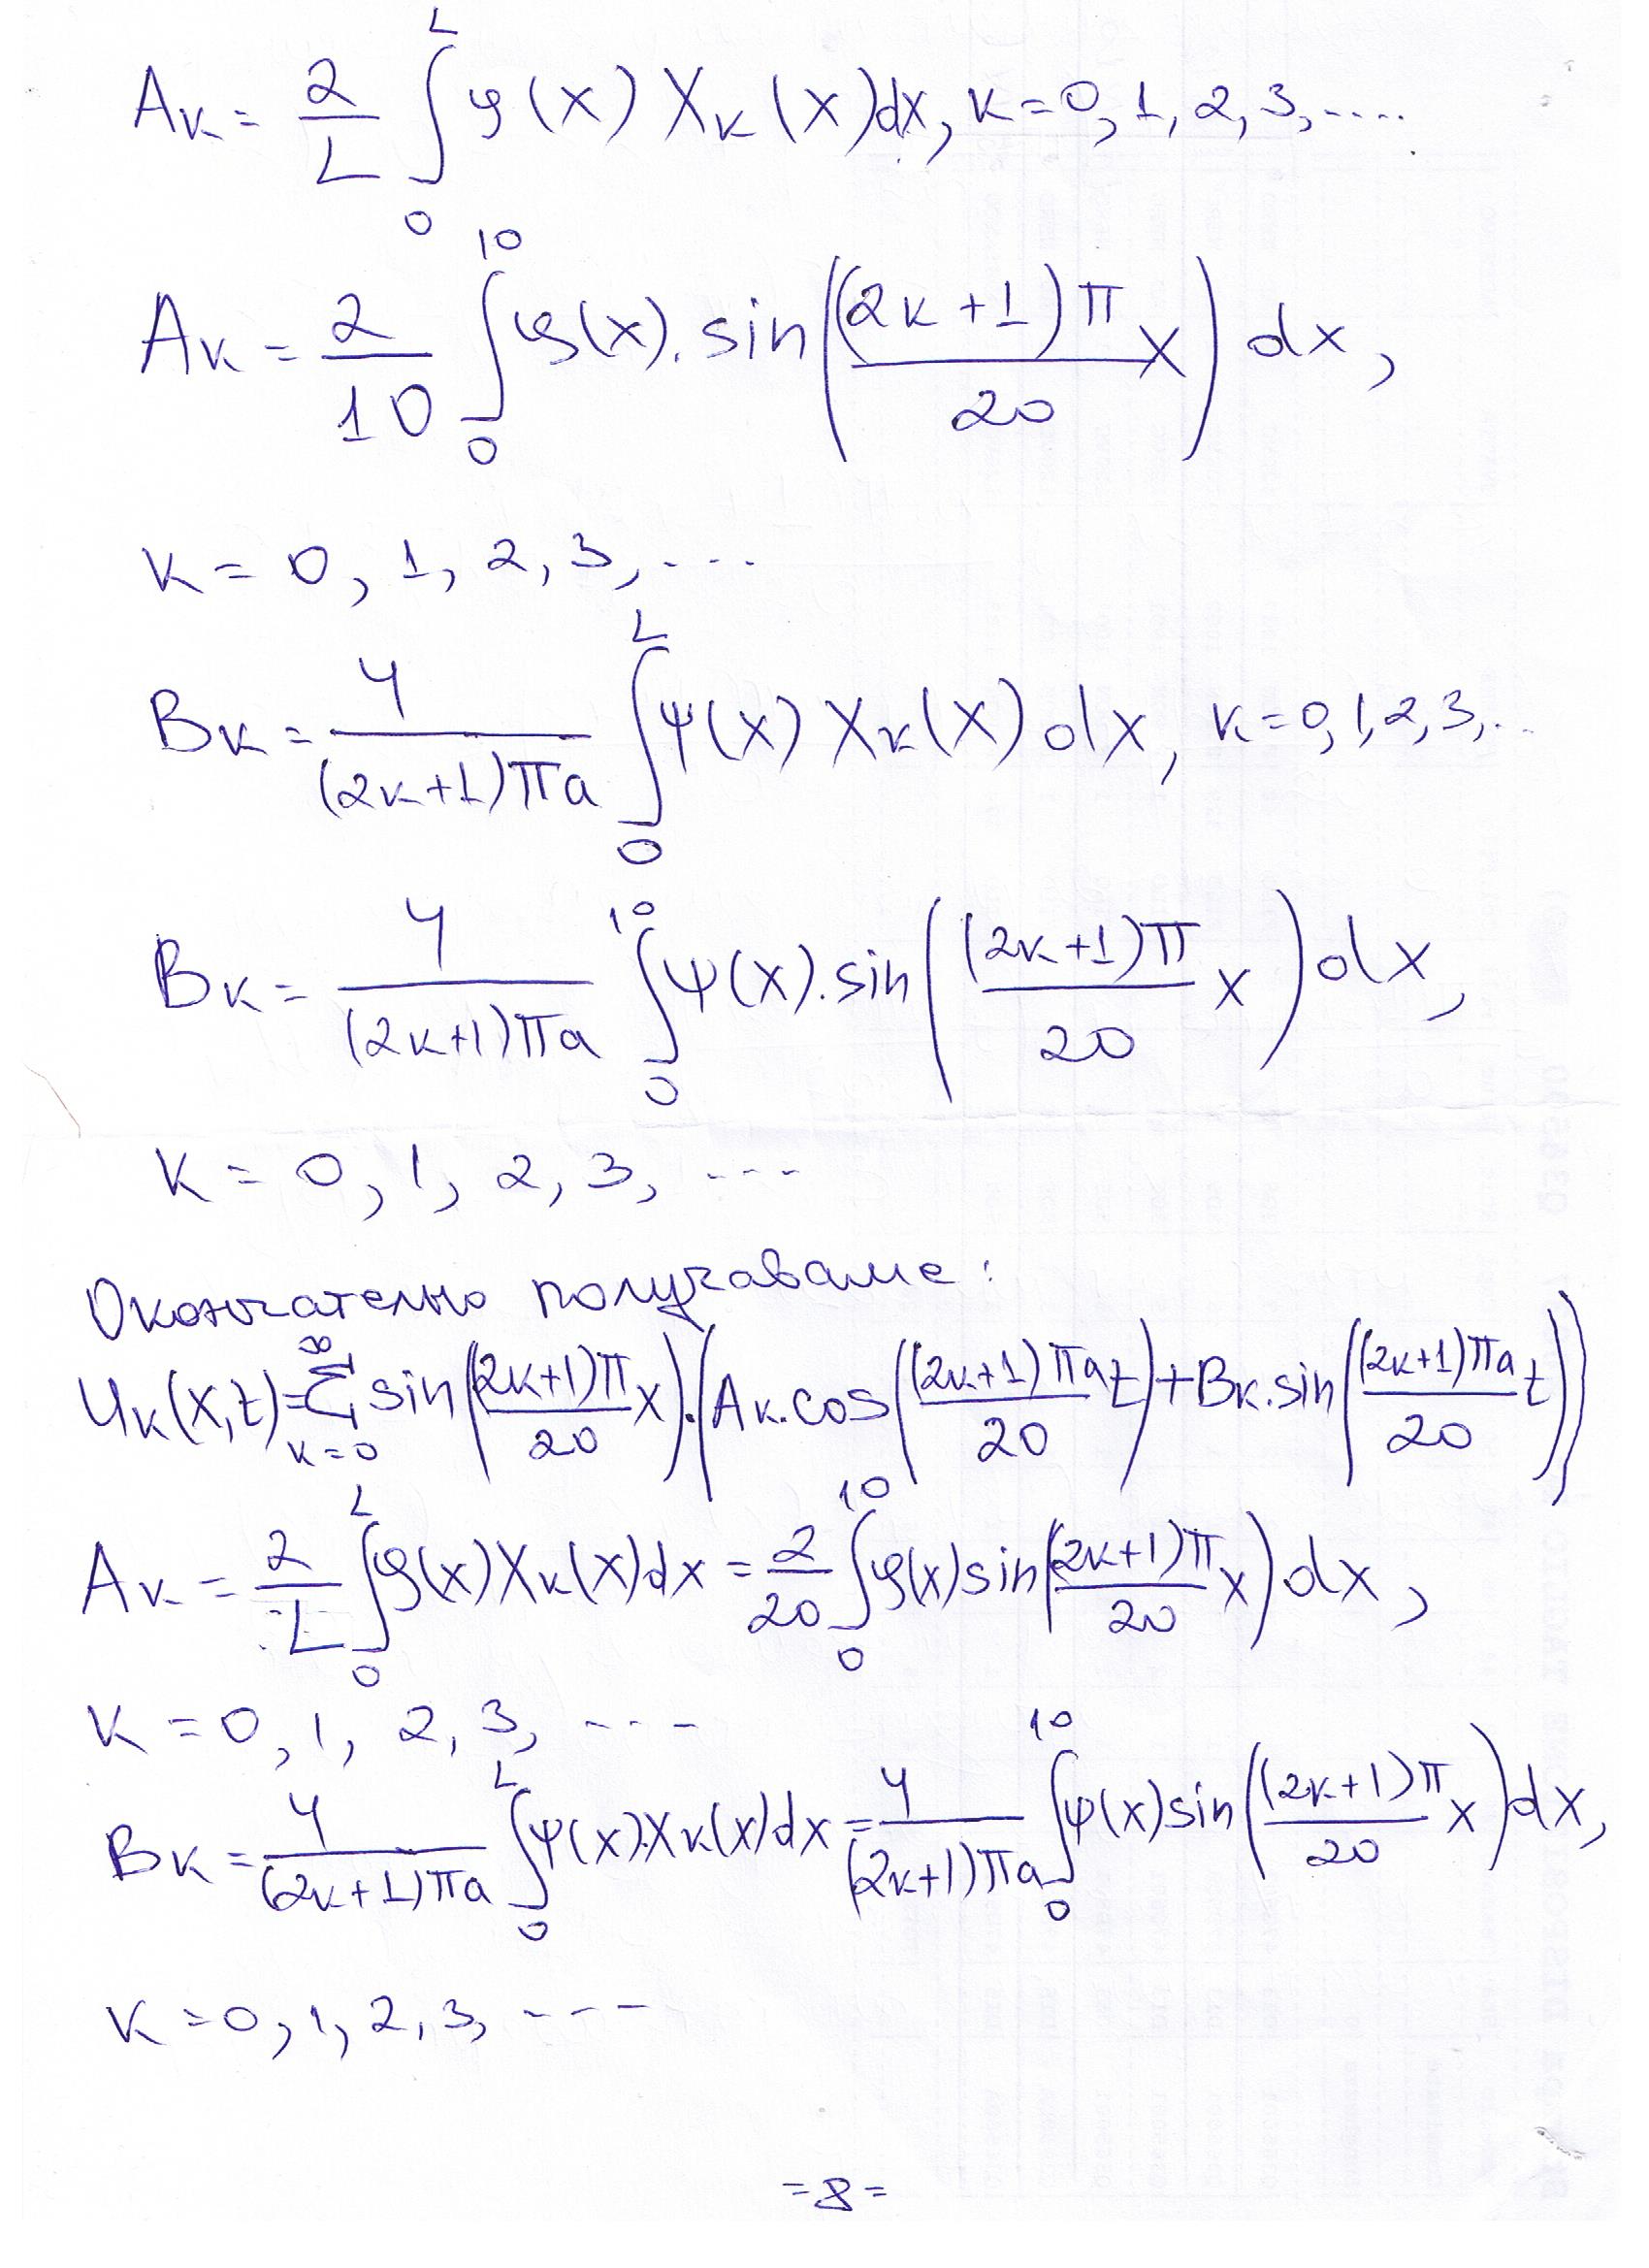 Aк = 2/L ∫₀ᴸ φ(x) Xк(x)dx, к=0, 1, 2, 3, ....
Aк = 2/10 ∫₀¹⁰ φ(x). sin((2к+1)π/20 x) dx,
к = 0, 1, 2, 3, ...
Bк = 4/((2к+1)πa) ∫₀ᴸ ψ(x) Xк(x) dx, к=0,1,2,3,..
Bк = 4/((2к+1)πa) ∫₀¹⁰ ψ(x). sin((2к+1)π/20 x) dx,
к = 0, 1, 2, 3, ...
Окончателно получаваме:
Uк(x,t)=∑ к=0 ∞ sin((2к+1)π/20 x).(Aк.cos((2к+1)πa/20 t)+Bк.sin((2к+1)πa/20 t))
Aк = 2/L ∫₀ᴸ φ(x)Xк(x)dx = 2/20 ∫₀¹⁰ φ(x)sin((2к+1)π/20 x) dx,
к = 0, 1, 2, 3, ---
Bк = 4/((2к+1)πa) ∫₀ᴸ ψ(x).Xк(x)dx = 4/((2к+1)πa) ∫₀¹⁰ ψ(x)sin((2к+1)π/20 x)dx,
к=0, 1, 2, 3, ---
=8=